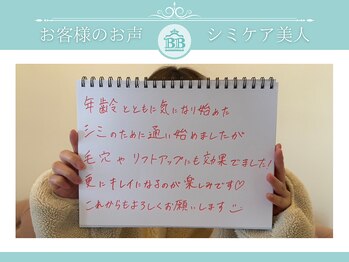 お客様のお声
BB
シミケア美人
年齢とともに気になり始めた
シミのために通い始めましたが
毛穴やリフトアップにも効果でました!
更にキレイになるのが楽しみです♡
これからもよろしくお願いします